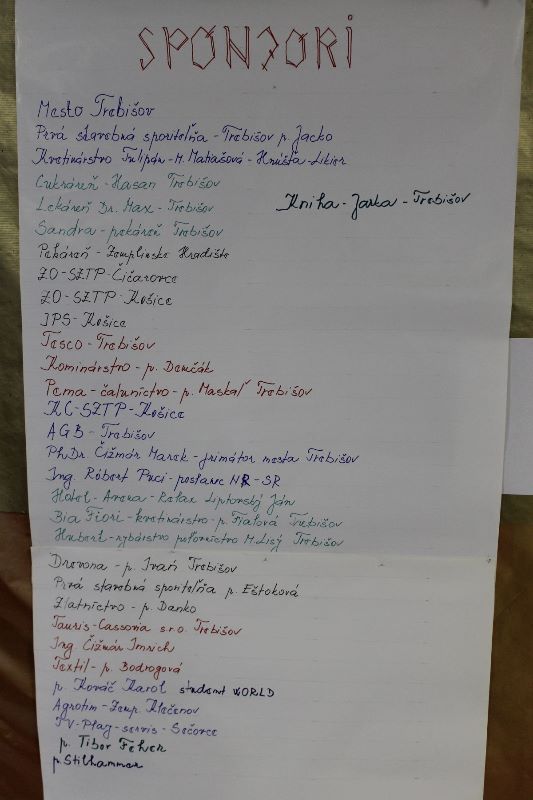 SPONZORI
Mesto Trebišov
Prvá stavebná sporiteľňa - Trebišov p. Jacko
Kvetinárstvo Tulipán - M. Matiašová - Hnúšťa - Likier
Cukráreň - Hasan Trebišov
Lekáreň Dr. Max - Trebišov
Kniha - Jarka - Trebišov
Sandra - pekáreň Trebišov
Pekáreň - Zemplínske Hradište
ZO - SZTP - Čičarovce
ZO - SZTP - Košice
IPS - Košice
Tesco - Trebišov
Kominárstvo - p. Demčák
Pema - čaluníctvo - p. Maskaľ Trebišov
KC - SZTP - Košice
AGB - Trebišov
PhDr. Čižmár Marek - primátor mesta Trebišov
Ing. Róbert Puci - poslanec NR - SR
Hotel - Arena - Relax Liptovský Ján
Bia Fiori - kvetinárstvo - p. Fialová Trebišov
Hubert - rybárstvo poľovníctvo M. Lisý Trebišov
Drevona - p. Ivan Trebišov
Prvá stavebná sporiteľňa p. Eštoková
Zlatníctvo - p. Danko
Tauris - Cassovia s.r.o. Trebišov
Ing. Čižmár Imrich
Textil - p. Bodrogová
p. Kováč Karol student WORLD
Agrotim - Zemp. Klečenov
TV - Play - servis - Sečovce
p. Tibor Feher
p. Stilhammer